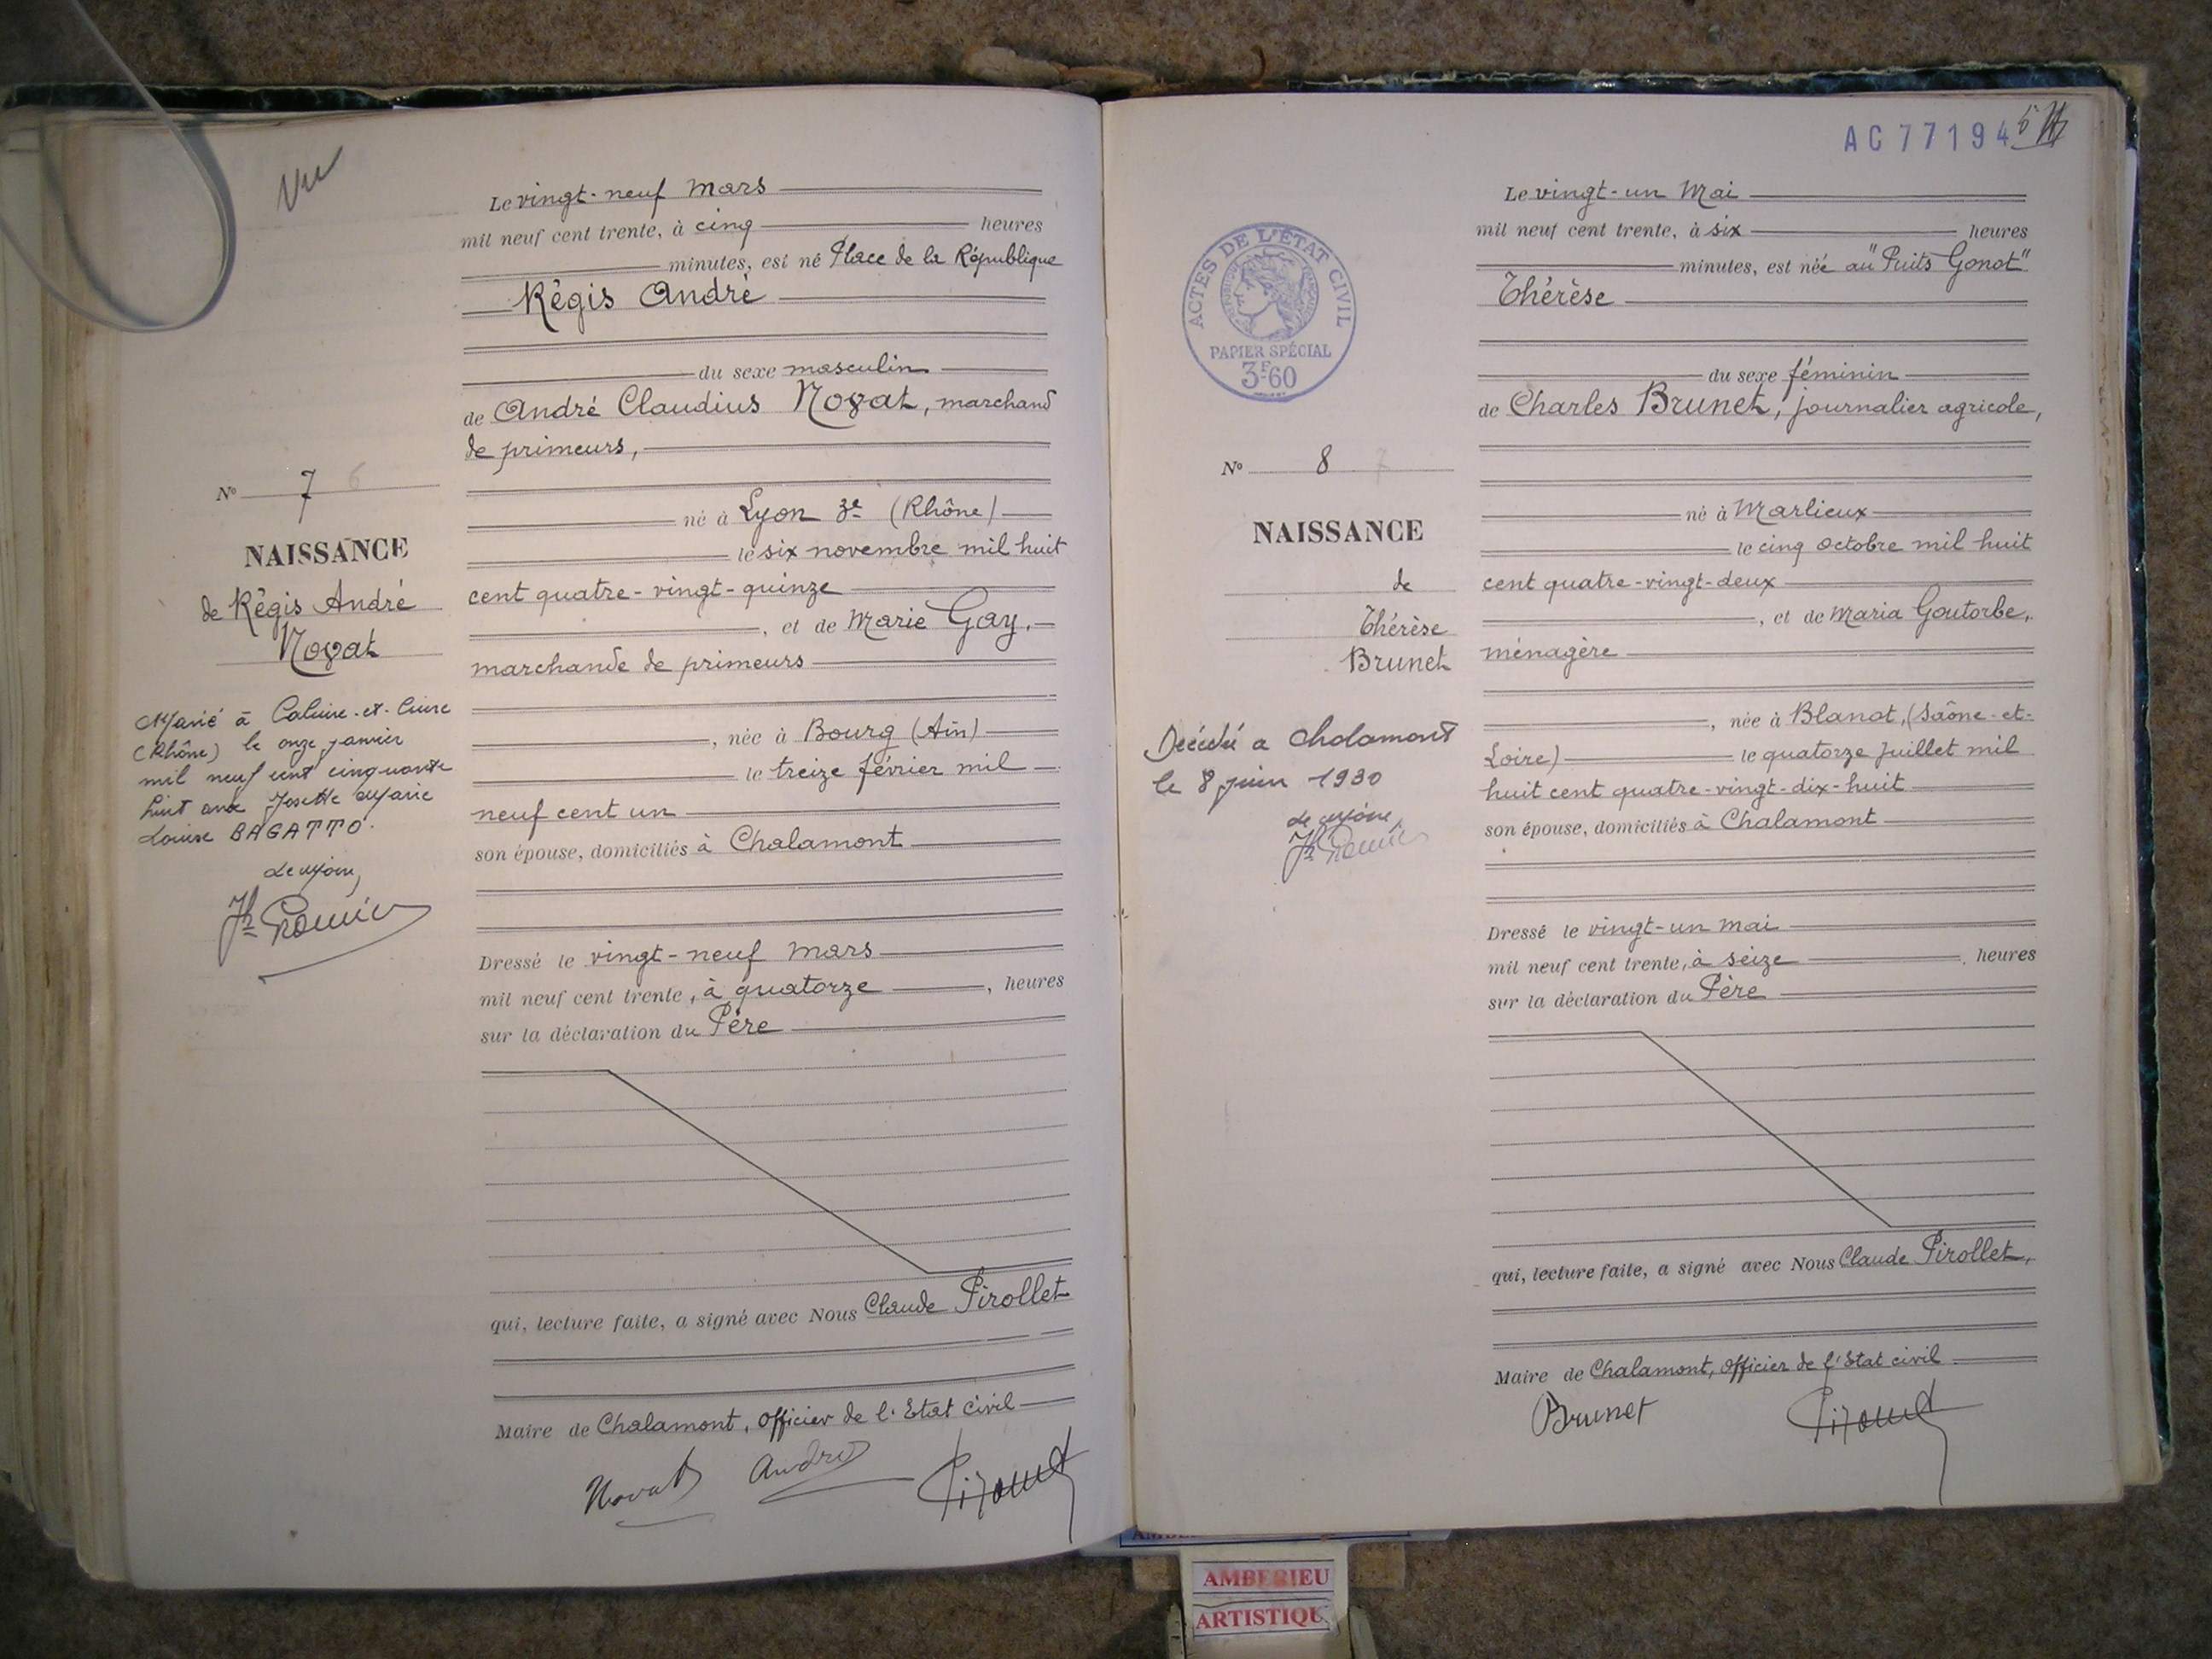 Vu
Le vingt-neuf mars
mil neuf cent trente, à cinq heures
minutes, est né Place de la République
Régis André
du sexe masculin
de André Claudius Novat, marchand
de primeurs,
né à Lyon 3e (Rhône)
le six novembre mil huit
cent quatre-vingt-quinze
, et de Marie Gay,
marchande de primeurs
, née à Bourg (Ain)
le treize février mil
neuf cent un
son épouse, domiciliés à Chalamont
Dressé le vingt-neuf mars
mil neuf cent trente, à quatorze, heures
sur la déclaration du Père
qui, lecture faite, a signé avec Nous Claude Pirollet
Maire de Chalamont, Officier de l'Etat civil
Novat André
N° 7 6
NAISSANCE
de Régis André
Novat
Marié à Caluire-et-Cuire
(Rhône) le onze janvier
mil neuf cent cinquante
huit avec Josette Marie
Louise BAGATTO.
Le Maire,
AC 77194 5
ACTES DE L'ÉTAT CIVIL
PAPIER SPÉCIAL
3F60
Le vingt-un Mai
mil neuf cent trente, à six heures
minutes, est née au "Puits Gonot"
Thérèse
du sexe féminin
de Charles Brunet, journalier agricole,
né à Marlieux
le cinq octobre mil huit
cent quatre-vingt-deux
, et de Maria Goutorbe,
ménagère
, née à Blanot, (Saône-et-
Loire) le quatorze juillet mil
huit cent quatre-vingt-dix-huit
son épouse, domiciliés à Chalamont
Dressé le vingt-un mai
mil neuf cent trente, à seize, heures
sur la déclaration du Père
qui, lecture faite, a signé avec Nous Claude Pirollet,
Maire de Chalamont, Officier de l'Etat civil
Brunet
N° 8 7
NAISSANCE
de
Thérèse
Brunet
Décédé a Chalamont
le 8 juin 1930
Le Maire,
AMBERIEU
ARTISTIQU